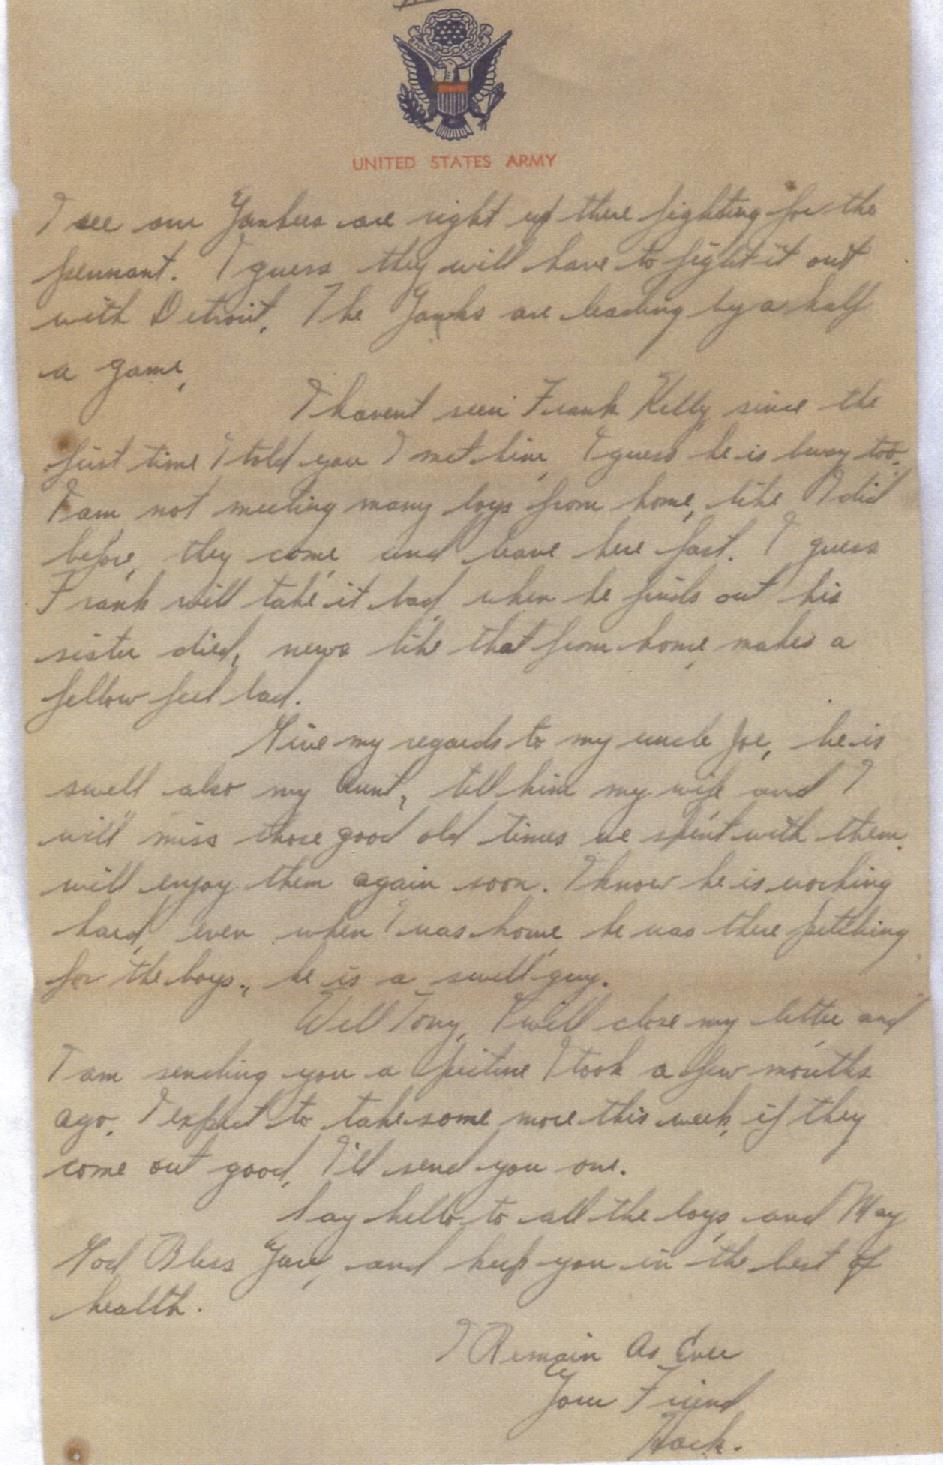 UNITED STATES ARMY
I see our Yankees are right up there fighting for the
pennant. I guess they will have to fight it out
with Detroit. The Yanks are leading by a half
a game.
I havent seen Frank Kelly since the
first time I told you I met him. I guess he is busy too.
I am not meeting many boys from home, like I did
before, they come and leave here fast. I guess
Frank will take it bad, when he finds out his
sister died, news like that from home, makes a
fellow feel bad.
Give my regards to my uncle Joe, he is
swell also my Aunt, tell him my wife and I
will miss those good old times we spent with them.
will enjoy them again soon. I know he is working
hard, even when I was home, he was there pitching
for the boys., he is a swell guy.
Well Tony, I will close my letter and
I am sending you a picture I took a few months
ago. I expect to take some more this week, if they
come out good, I'll send you one.
Say hello to all the boys, and May
God Bless You, and keep you in the best of
health.
I Remain As Ever
Your Friend
Hack.